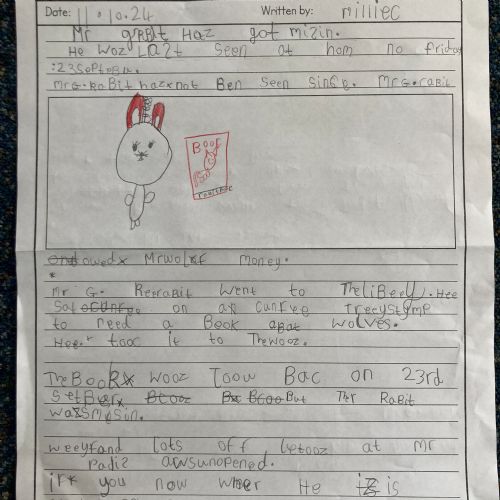 Date: 11.10.24 Written by: milliec
Mr grabit Haz got mizin.
He woz Lazt seen at hom no fridat
:23 Septobr.
Mr G.raBit hazxnot Ben seen sinse. Mr G.rabit
Boof
owedx Mrwolxf money.
*
Mr G. Reerabit went to The liBeell. Hee
Sat on ax cunree Treeystymp
to reed a Book abat wolves.
Hee.* tooc it to The wooz.
The Bookx wooz Toow Bac on 23rd
SetBerx But Thr RaBit
wazsmysin.
weeyfand lots off letooz at Mr
radis awsunopened.
irx you now wher He is